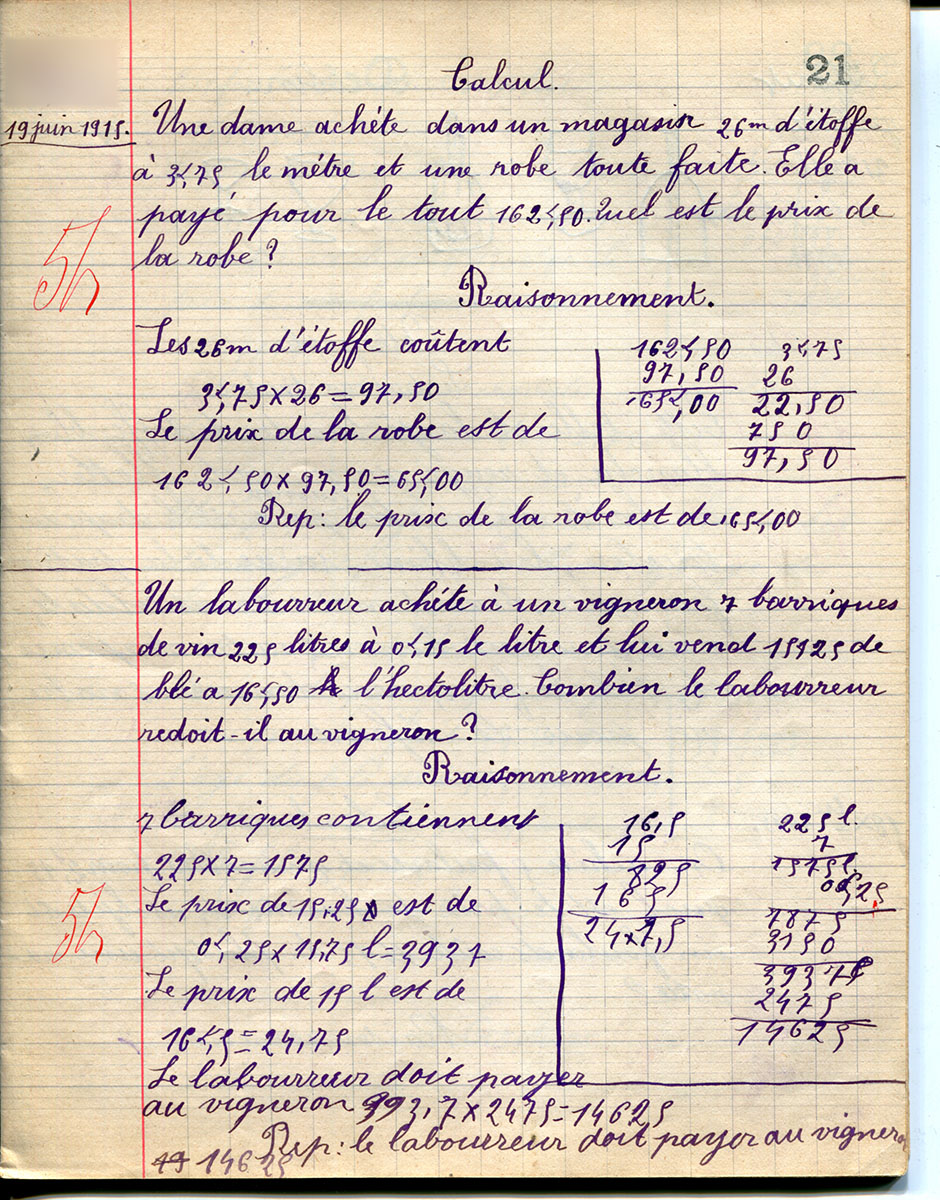 21
Calcul.
19 juin 1915.
Une dame achéte dans un magasin 26m d'étoffe
à 3f,75 le métre et une robe toute faite. Elle a
payé pour le tout 162f,50. Quel est le prix de
la robe ?
Raisonnement.
Les 26m d'étoffe coûtent
3f,75 × 26 = 97,50
Le prix de la robe est de
162f,50 × 97,50 = 65f,00
162f,50
97,50
65f,00
3f75
26
22,50
750
97,50
Rep: le prix de la robe est de 65f,00
Un labourreur achéte à un vigneron 7 barriques
de vin 225 litres à 0f15 le litre et lui vend de
blé a 16f,50 l'hectolitre. Combien le labourreur
redoit-il au vigneron ?
Raisonnement.
7 barriques contiennent
225 × 7 = 1575
Le prix de 15,25 est de
0f,25 × 15,75 l = 3937
Le prix de 15 l est de
16f,5 = 24,75
Le labourreur doit payer
au vigneron 393,7 × 2475 = 14625
16,5
15
825
165
247,5
225 l.
7
1575 l
7875
3150
39375
2475
14625
Rep: le labourreur doit payer au vigneron
14625